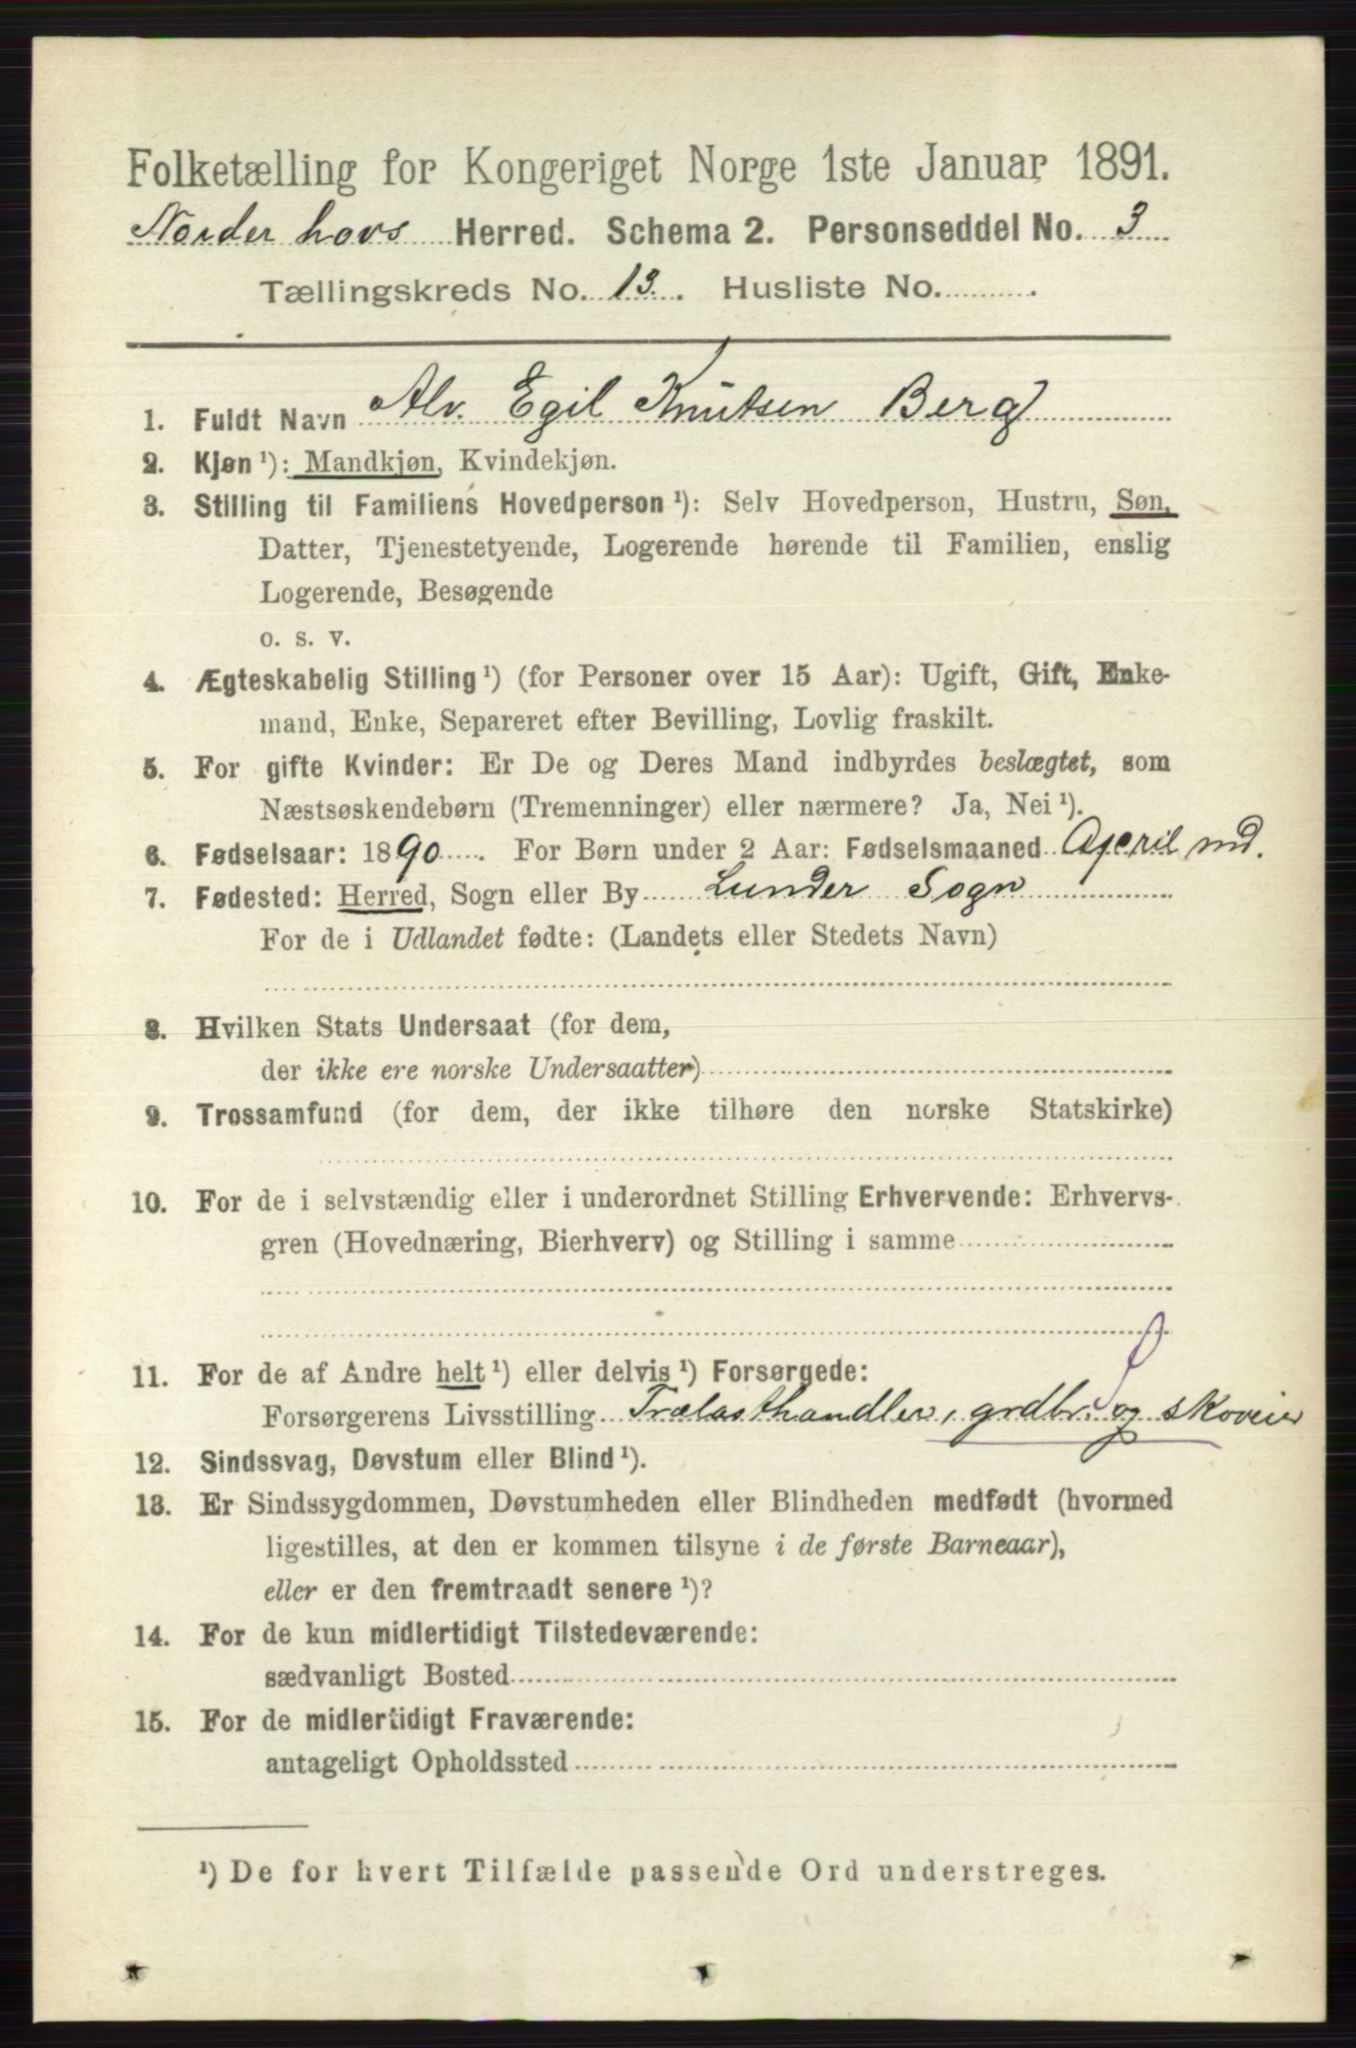 Folketælling for Kongeriget Norge 1ste Januar 1891.
Norderhovs Herred. Schema 2. Personseddel No. 3
Tællingskreds No. 13. Husliste No. .
1. Fuldt Navn Alv. Egil Knutsen Berg
2. Kjøn ¹): Mandkjøn, Kvindekjøn.
3. Stilling til Familiens Hovedperson ¹): Selv Hovedperson, Hustru, Søn,
Datter, Tjenestetyende, Logerende hørende til Familien, enslig
Logerende, Besøgende
o. s. v.
4. Ægteskabelig Stilling ¹) (for Personer over 15 Aar): Ugift, Gift, Enke-
mand, Enke, Separeret efter Bevilling, Lovlig fraskilt.
5. For gifte Kvinder: Er De og Deres Mand indbyrdes beslægtet, som
Næstsøskendebørn (Tremenninger) eller nærmere? Ja, Nei ¹).
6. Fødselsaar: 1890. For Børn under 2 Aar: Fødselsmaaned April md.
7. Fødested: Herred, Sogn eller By Lunder Sogn
For de i Udlandet fødte: (Landets eller Stedets Navn)
8. Hvilken Stats Undersaat (for dem,
der ikke ere norske Undersaatter)
9. Trossamfund (for dem, der ikke tilhøre den norske Statskirke)
10. For de i selvstændig eller i underordnet Stilling Erhvervende: Erhvervs-
gren (Hovednæring, Bierhverv) og Stilling i samme
11. For de af Andre helt ¹) eller delvis ¹) Forsørgede:
Forsørgerens Livsstilling Trælasthandler, grdbr. og skoveier
12. Sindssvag, Døvstum eller Blind ¹).
13. Er Sindssygdommen, Døvstumheden eller Blindheden medfødt (hvormed
ligestilles, at den er kommen tilsyne i de første Barneaar),
eller er den fremtraadt senere ¹)?
14. For de kun midlertidigt Tilstedeværende:
sædvanligt Bosted
15. For de midlertidigt Fraværende:
antageligt Opholdssted
¹) De for hvert Tilfælde passende Ord understreges.